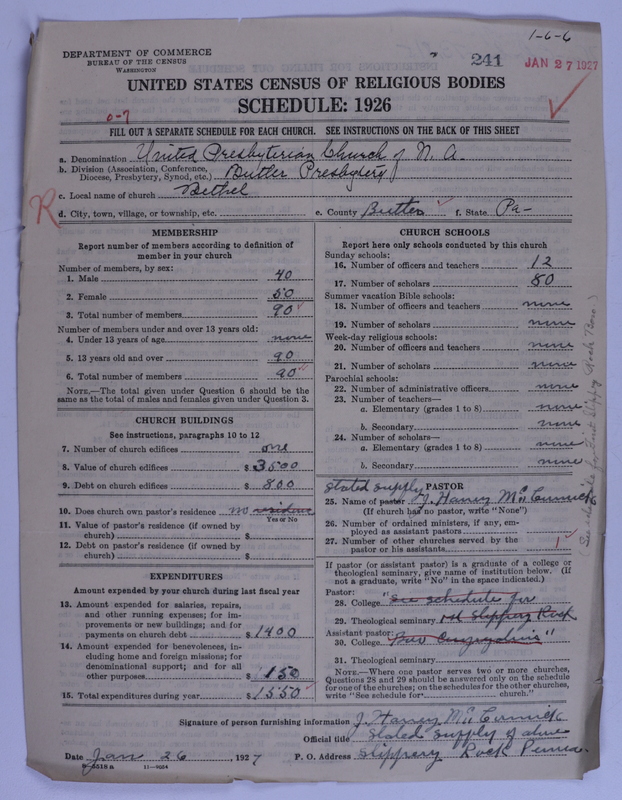 1-6-6
DEPARTMENT OF COMMERCE
BUREAU OF THE CENSUS
WASHINGTON
241
JAN 27 1927
UNITED STATES CENSUS OF RELIGIOUS BODIES
SCHEDULE: 1926
0-7
FILL OUT A SEPARATE SCHEDULE FOR EACH CHURCH. SEE INSTRUCTIONS ON THE BACK OF THIS SHEET
a. Denomination United Presbyterian Church of N. A.
b. Division (Association, Conference, Diocese, Presbytery, Synod, etc.) Butler Presbytery
c. Local name of church Bethel
R
d. City, town, village, or township, etc. e. County Butler f. State Pa-
MEMBERSHIP
Report number of members according to definition of
member in your church
Number of members, by sex:
1. Male 40
2. Female 50
3. Total number of members 90
Number of members under and over 13 years old:
4. Under 13 years of age none
5. 13 years old and over 90
6. Total number of members 90
NOTE.—The total given under Question 6 should be the
same as the total of males and females given under Question 3.
CHURCH BUILDINGS
See instructions, paragraphs 10 to 12
7. Number of church edifices one
8. Value of church edifices $ 3500
9. Debt on church edifices $ 800
10. Does church own pastor's residence no residence
Yes or No
11. Value of pastor's residence (if owned by
church) $
12. Debt on pastor's residence (if owned by
church) $
EXPENDITURES
Amount expended by your church during last fiscal year
13. Amount expended for salaries, repairs,
and other running expenses; for im-
provements or new buildings; and for
payments on church debt $ 1400
14. Amount expended for benevolences, in-
cluding home and foreign missions; for
denominational support; and for all
other purposes $ 150
15. Total expenditures during year $ 1550
CHURCH SCHOOLS
Report here only schools conducted by this church
Sunday schools:
16. Number of officers and teachers 12
17. Number of scholars 80
Summer vacation Bible schools:
18. Number of officers and teachers none
19. Number of scholars none
Week-day religious schools:
20. Number of officers and teachers none
21. Number of scholars none
Parochial schools:
22. Number of administrative officers none
23. Number of teachers—
a. Elementary (grades 1 to 8) none
b. Secondary none
24. Number of scholars—
a. Elementary (grades 1 to 8) none
b. Secondary none
Stated supply PASTOR
25. Name of pastor J. Harvey McCormick
(If church has no pastor, write "None")
26. Number of ordained ministers, if any, em-
ployed as assistant pastors
27. Number of other churches served by the
pastor or his assistants 1
If pastor (or assistant pastor) is a graduate of a college or
theological seminary, give name of institution below. (If
not a graduate, write "No" in the space indicated.)
Pastor:
28. College "See schedule for
29. Theological seminary 1st Slippery Rock
Assistant pastor:
30. College Boro Congregations"
31. Theological seminary
NOTE.—Where one pastor serves two or more churches,
Questions 28 and 29 should be answered only on the schedule
for one of the churches; on the schedules for the other churches,
write "See schedule for church."
See schedule for First Slippery Rock Boro
Signature of person furnishing information J. Harvey McCormick
Official title Stated supply of above
Date Jan 26, 1927 P. O. Address Slippery Rock Penna.
8-5518a 11-9054